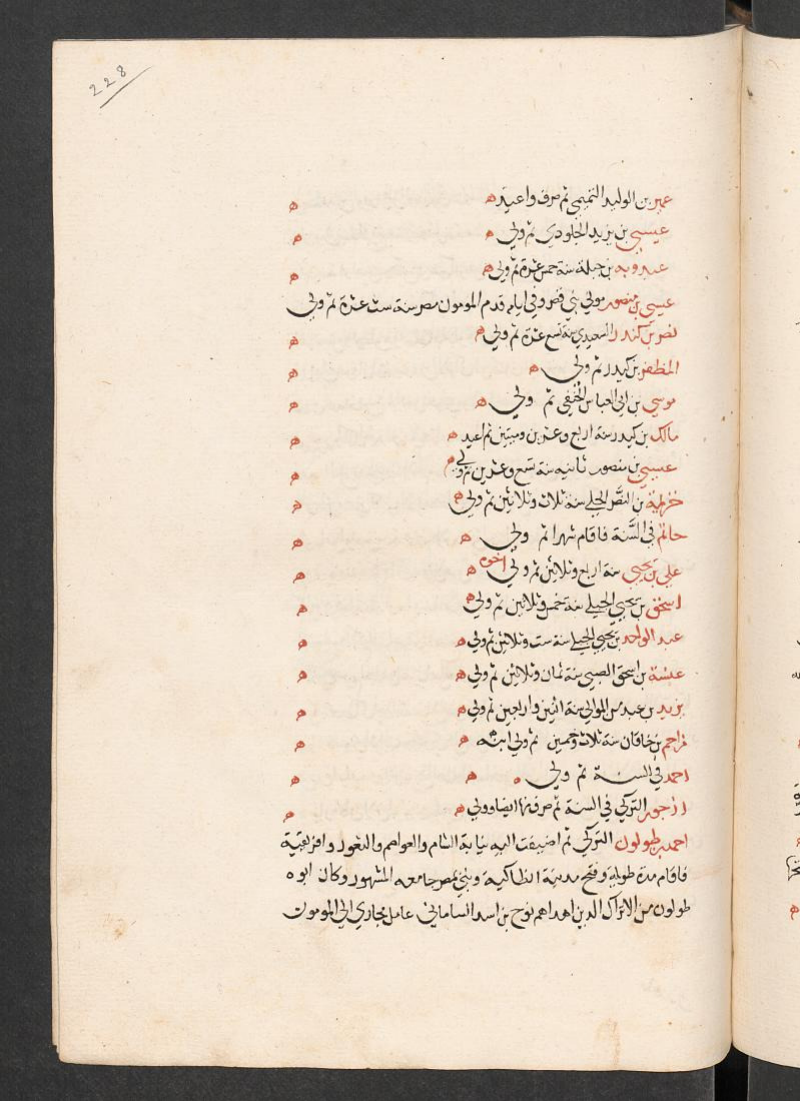 228
عمير بن الوليد التميمي ثم صرف واعيد ه ه
عيسى بن يزيد الجلودي ثم ولي ه ه
عبدويه بن جبلة سنة خمس عشرة ثم ولي ه ه
عيسى بن منصور مولي بني نصر وفي ايامه قدم المومون مصر سنة ست عشرة ثم ولي
نصر بن كندر السعيدي سنة تسع عشرة ثم ولي ه ه
المظفر بن كيدر ثم ولي ه ه
موسي بن ابي العباس الحنفي ثم ولي ه ه
مالك بن كيدر سنة اربع وعشرين وميتين ثم اعيد ه ه
عيسى بن منصور ثانيه سنة تسع وعشرين ثم ولي ه ه
خرثمة بن النضر الجبلي سنة ثلاث وثلاثين ثم ولي ه ه
حاتم في السنة فاقام شهرا ثم ولي ه ه
علي بن يحيي سنة اربع وثلاثين ثم ولي اخوه ه ه
اسحق بن يحيي الجبلي سنة خمس وثلاثين ثم ولي ه ه
عبد الواحد بن يحيي الجبلي سنة ست وثلاثين ثم ولي ه ه
عبسة بن اسحق الضبي سنة ثمان وثلاثين ثم ولي ه ه
يزيد بن عبد من الموالي سنة اثنين واربعين ثم ولي ه ه
مزاحم بن خاقان سنة ثلاث وخمسين ثم ولي ابنه ه ه
احمد في السنة ثم ولي ه ه
ارجور التركي في السنة ثم صرف بها ايضا وولي ه ه
احمد بن طولون التركي ثم اضيفت اليه نيابة الشام والعواصم والثغور وافريقية
فاقام مدة طويلة وفتح مدينة انطاكية وبني بمصر جامعه المشهور وكان ابوه
طولون من الاتراك الدين اهداهم نوح بن اسد الساماني عامل بخاري الي المومون